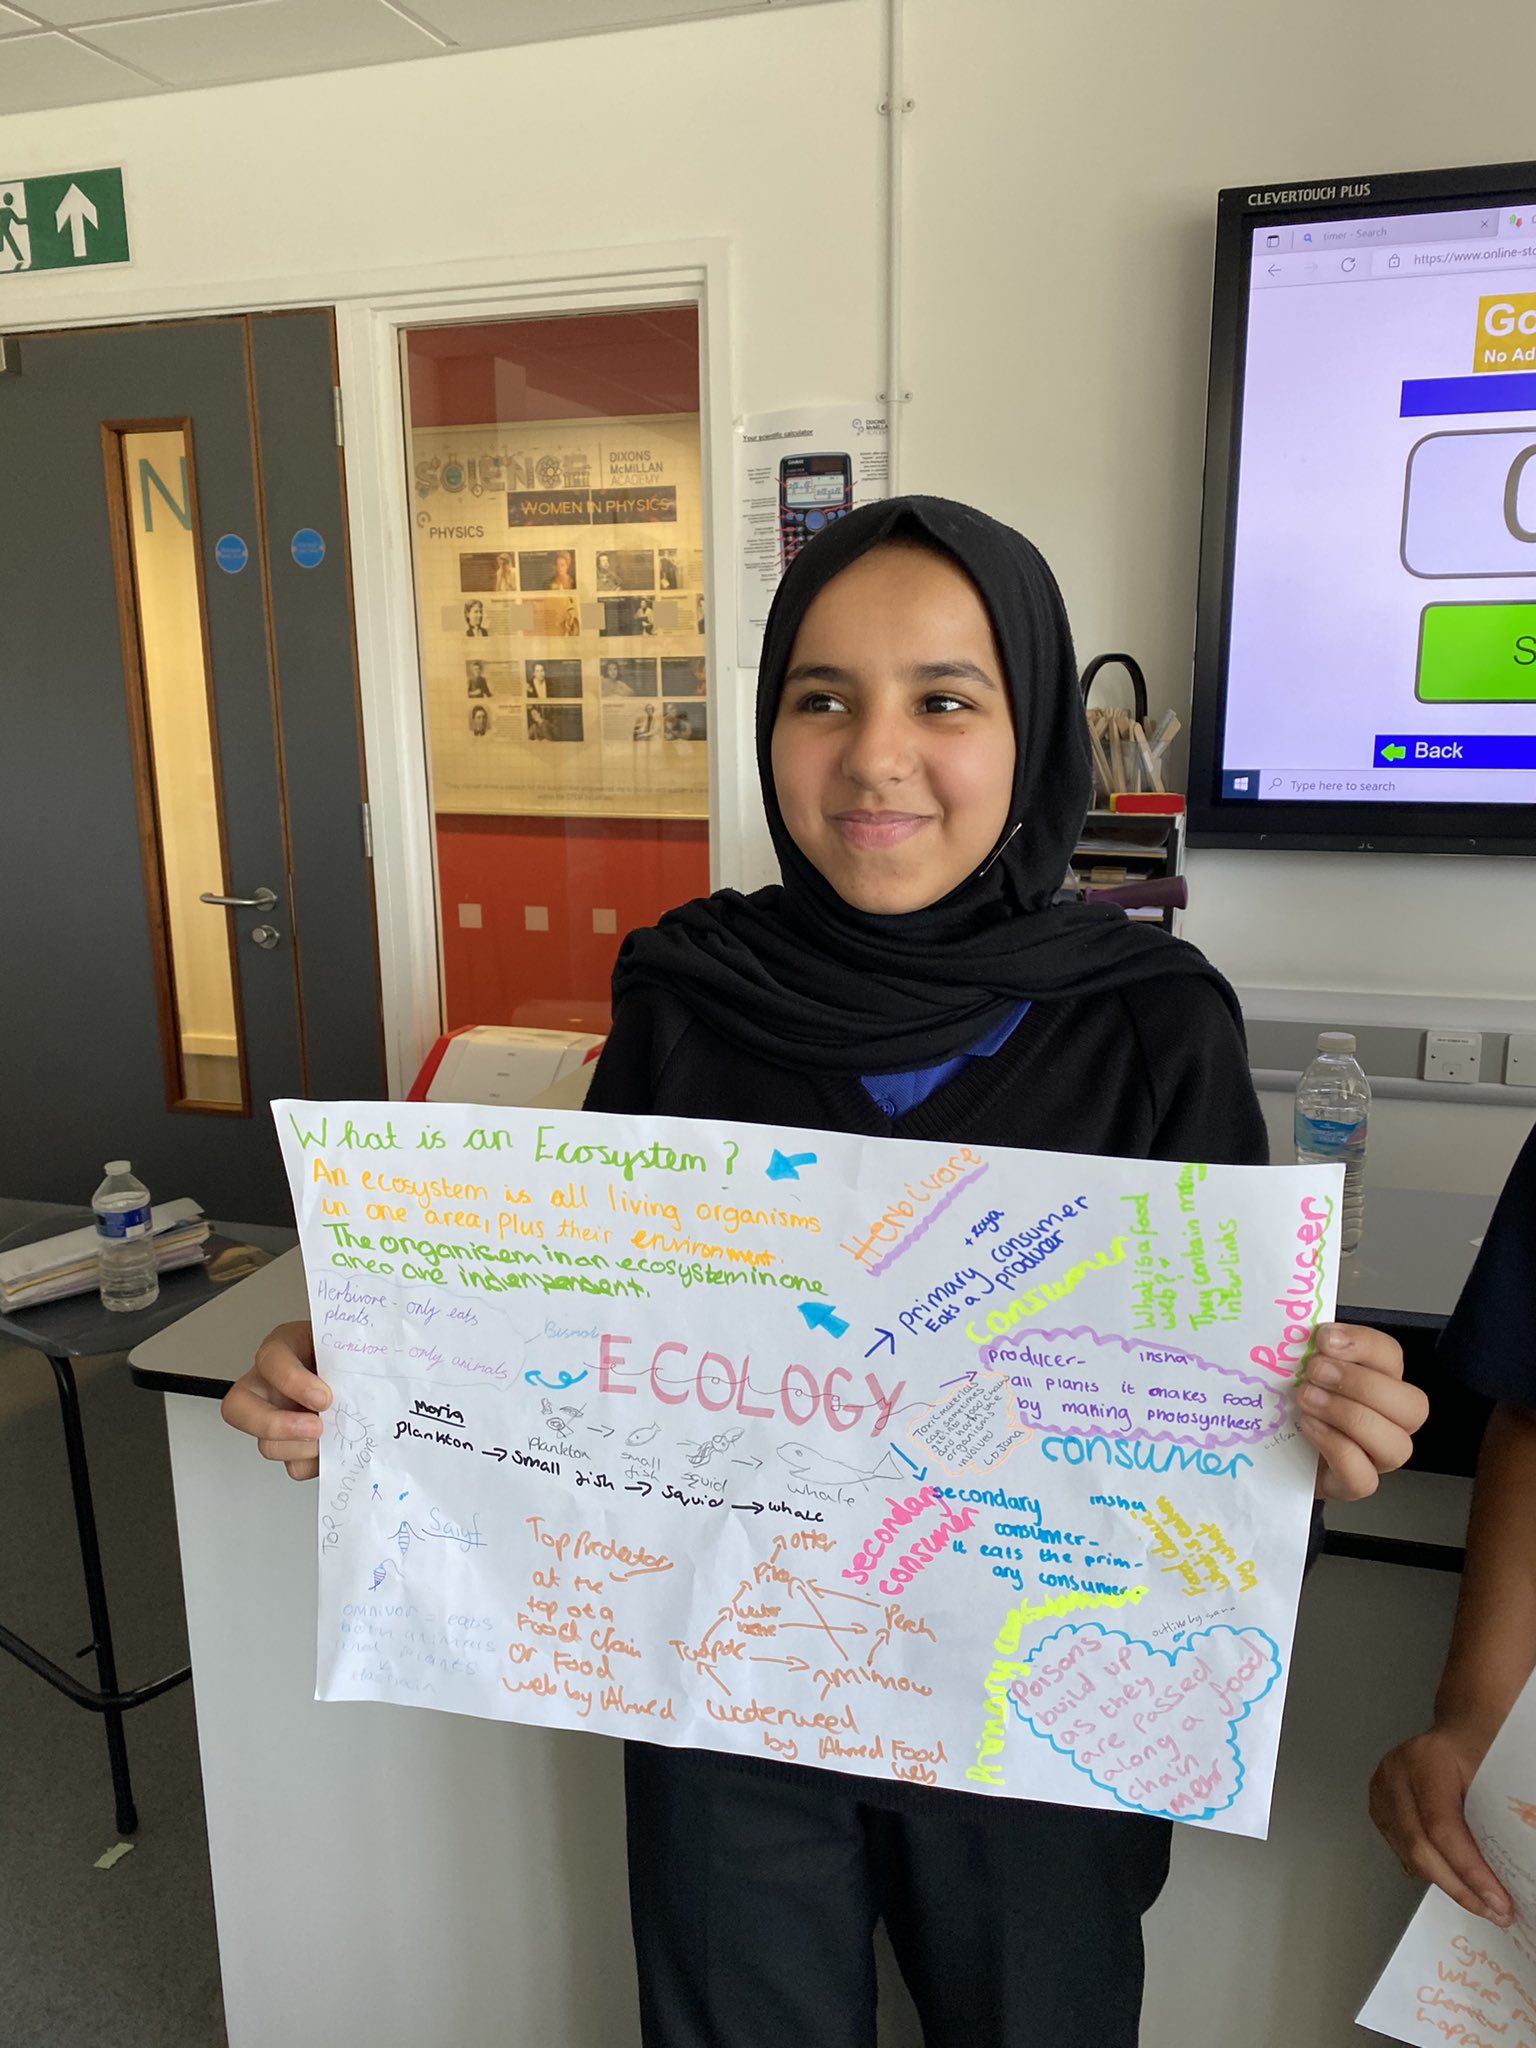 CLEVERTOUCH PLUS
timer - Search
https://www.online-sto
Go
No Ad
S
Back
Type here to search
N
SCIENCE
DIXONS
McMILLAN
ACADEMY
WOMEN IN PHYSICS
PHYSICS
Your scientific calculator
DIXONS
McMILLAN
ACADEMY
What is an Ecosystem?
An ecosystem is all living organisms
in one area, plus their environment.
The organisem in an ecosystem in one
area are
Herbivore - only eats
plants.
Carnivore - only animals
Bismah
ECOLOGY
Maria
plankton → small fish → squid → whale
plankton
small
fish
squid
whale
Top Conivore
Saiyf
omnivor = eats
both animals
and plants
Top Predator
at the
top of a
Food Chain
or Food
web by Ahmed
otter
Pike
water
Perch
Tadpole
minnow
waterweed
by Ahmed Food
web
Herbivore
+ zoya
primary consumer
Eats a producer
consumer
What is a food
web?
They contain many
interlinks
Producer
producer- insha
all plants it makes food
by making photosynthesis
Toxic materials
can sometimes
get into food chains
and harm the
organisms
involved
Lojana
consumer
secondary
consumer
secondary insha
consumer-
it eats the prim-
ary consumer
Primary consumer
outline by sana
Poisons
build up
as they
are passed
along a food
chain
Mehr
Where
Chemical
happ